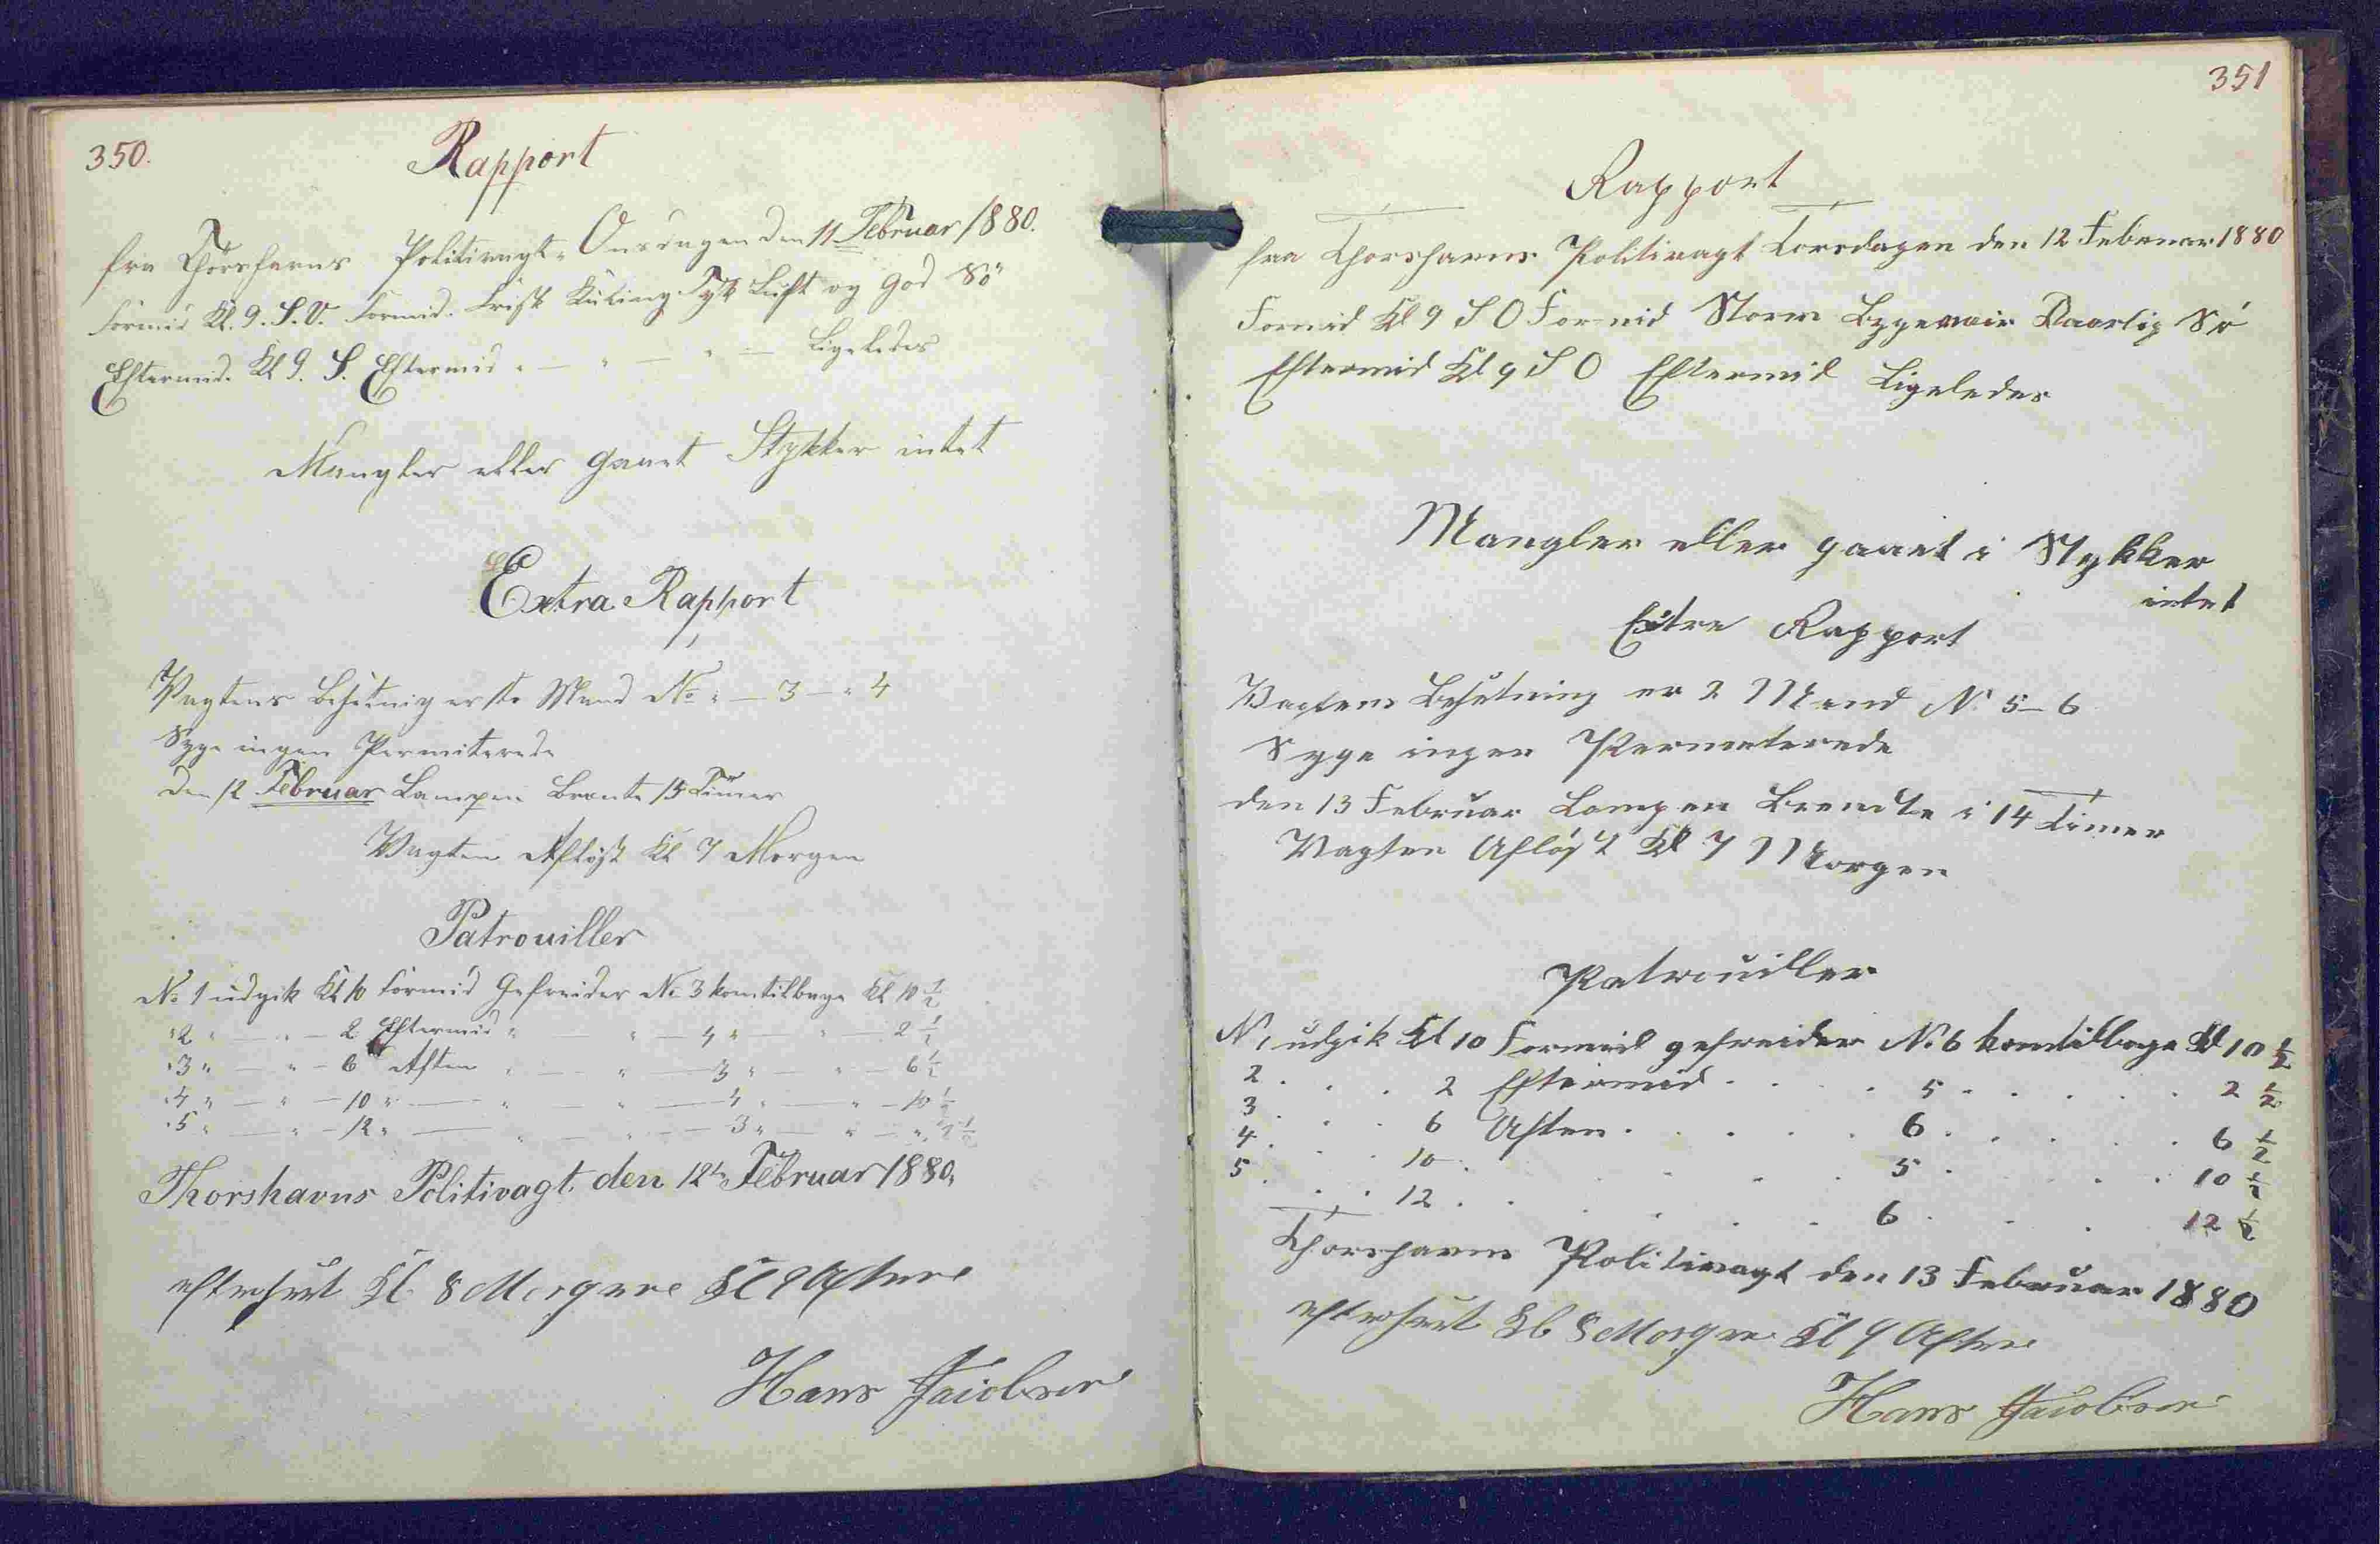 350.
Rapport
fra Thorshavns Politivagt. Onsdagen den 11 Februar 1880.
Formid Kl. 9. S.V. Formid. Frisk Kuling Tyk Luft og god Sö
Eftermid. Kl 9. S. Eftermid " — " — " — Ligeledes
Mangler eller gaaet Stykker intet
Extra Rapport
Vagtens Besetning er 2 Mand No " — 3 — " 4
Syge ingen Permiterede
den 12 Februar Lampen Brente 15 Timer
Vagten Afløst Kl 7 Morgen
Patrouiller
No 1 udgik Kl 10 Formid Gefreider No 3 komtilbage Kl 10 1/2
" 2 " — " — 2 Eftermid " — " — 4 " — " — 2 1/2
" 3 " — " — 6 Aften " — " — 3 " — " — 6 1/2
" 4 " — " — 10 " — " — " — 4 " — " — 10 1/2
" 5 " — " — 12 " — " — " — 3 " — " — " 1/2
Thorshavns Politivagt. den 12te Februar 1880,
efterseet Kl 8 Morgen Kl 9 Aften
Hans Jacobsen
351
Rapport
fra Thorshavns Politivagt Torsdagen den 12 Februar 1880
Formid Kl 9 S O Formid Storm Bygevair Daarlig Sø
Eftermid Kl 9 S O Eftermid Ligeledes
Mangler eller gaaet i Stykker
intet
Extra Rapport
Vagtens Besetning er 2 Mand N. 5 — 6
Syge ingen Permeterede
den 13 Februar Lampen Brendte i 14 Timer
Vagten Afløst Kl 7 Morgen
Patrouiller
N. 1 udgik Kl 10 Formid gefreider No 6 komtilbage Kl 10 1/2
2 . . . 2 Eftermid . . . 5 . . . . 2 1/2
3 . . . 6 Aften . . . . 6 . . . . 6 1/2
4 . . . 10 . . . . 5 . . . . 10 1/2
5 . . . 12 . . . . 6 . . . 12 1/2
Thorshavns Politivagt den 13 Februar 1880
efterseet Kl 8 Morgen Kl 9 Aften
Hans Jacobsen